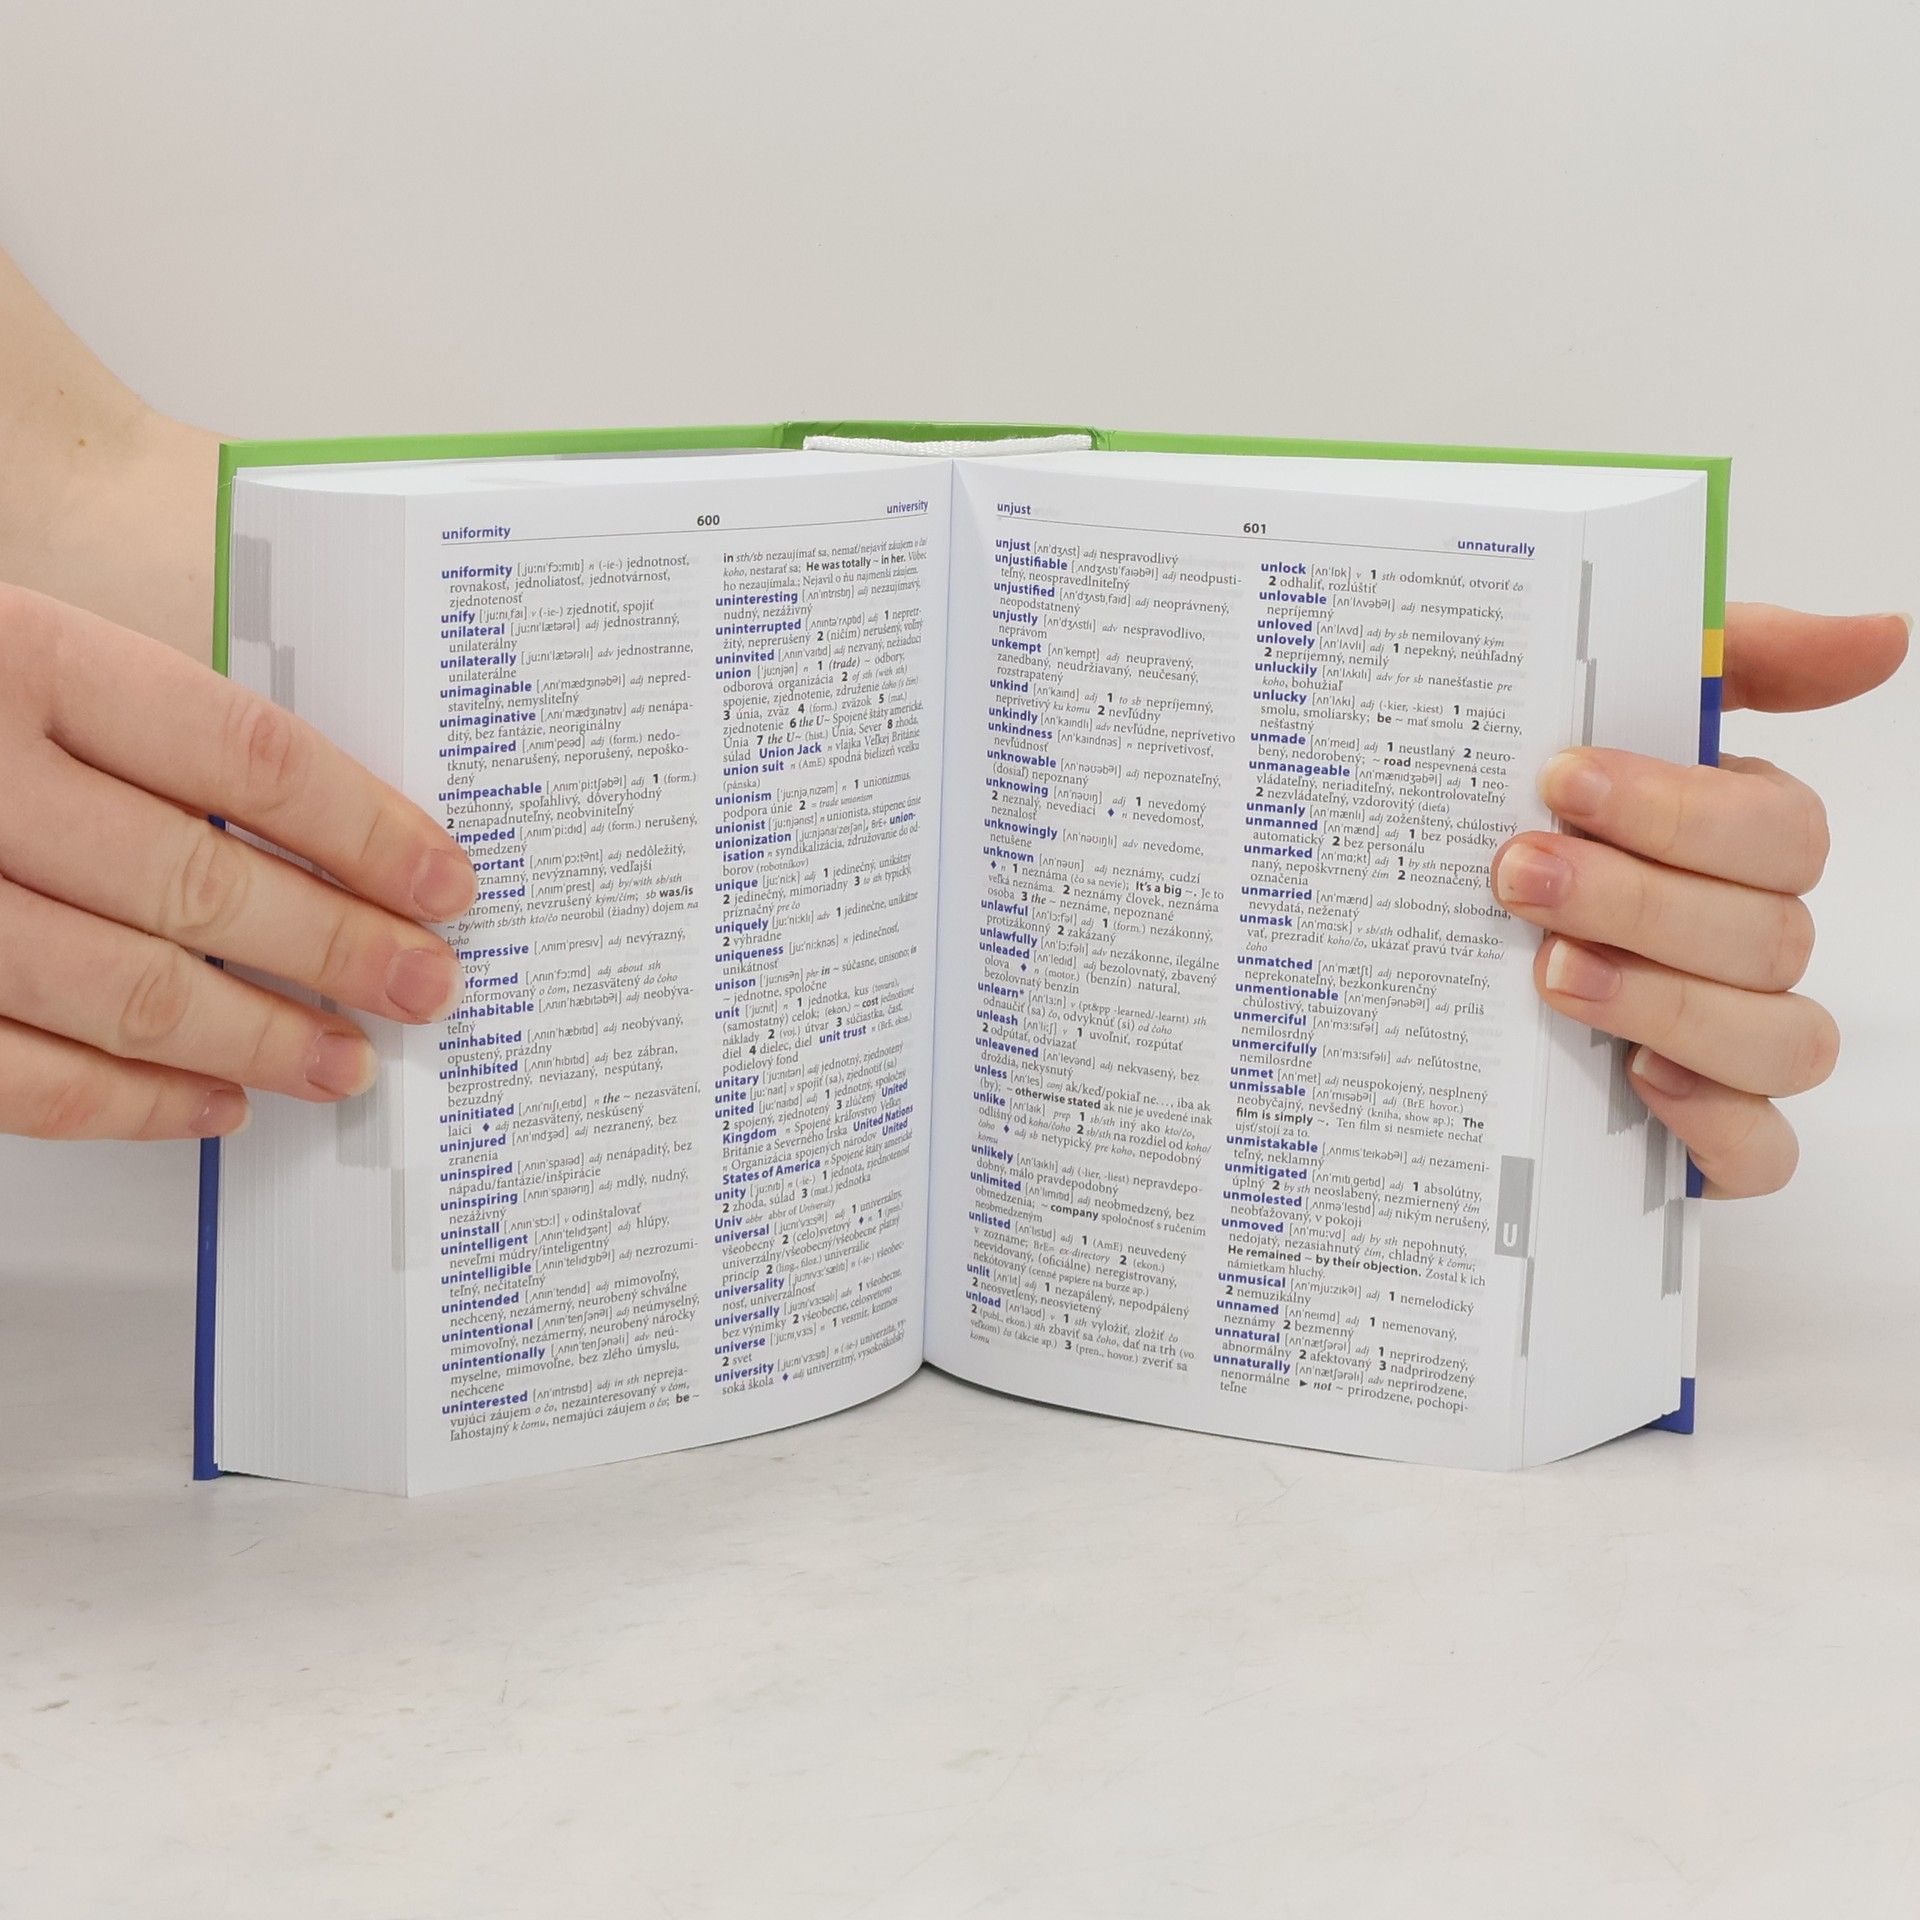 uniformity 600 university
uniformity [ˌjuːnɪˈfɔːmɪti] n (-ie-) jednotnosť,
rovnakosť, jednoliatosť, jednotvárnosť,
zjednotenosť
unify [ˈjuːnɪˌfaɪ] v (-ie-) zjednotiť, spojiť
unilateral [ˌjuːnɪˈlætərəl] adj jednostranný,
unilaterálny
unilaterally [ˌjuːnɪˈlætərəli] adv jednostranne,
unilaterálne
unimaginable [ˌʌnɪˈmædʒɪnəbᵊl] adj nepred-
staviteľný, nemysliteľný
unimaginative [ˌʌnɪˈmædʒɪnətɪv] adj nenápa-
ditý, bez fantázie, neoriginálny
unimpaired [ˌʌnɪmˈpeəd] adj (form.) nedo-
tknutý, nenarušený, neporušený, nepoško-
dený
unimpeachable [ˌʌnɪmˈpiːtʃəbᵊl] adj 1 (form.)
bezúhonný, spoľahlivý, dôveryhodný
2 nenapadnuteľný, neobviniteľný
[ˌʌnɪmˈpiːdɪd] adj (form.) nerušený,
[ˌʌnɪmˈpɔːtᵊnt] adj nedôležitý,
nevýznamný, vedľajší
[ˌʌnɪmˈprest] adj by/with sb/sth
nevzrušený kým/čím; sb was/is
~ by/with sb/sth kto/čo neurobil (žiadny) dojem na
koho
[ˌʌnɪmˈpresɪv] adj nevýrazný,
[ˌʌnɪnˈfɔːmd] adj about sth
o čom, nezasvätený do čoho
[ˌʌnɪnˈhæbɪtəbᵊl] adj neobýva-
teľný
uninhabited [ˌʌnɪnˈhæbɪtɪd] adj neobývaný,
opustený, prázdny
uninhibited [ˌʌnɪnˈhɪbɪtɪd] adj bez zábran,
bezprostredný, neviazaný, nespútaný,
bezuzdný
uninitiated [ˌʌnɪˈnɪʃɪˌeɪtɪd] n the ~ nezasvätení,
laici ♦ adj nezasvätený, neskúsený
uninjured [ʌnˈɪndʒəd] adj nezranený, bez
zranenia
uninspired [ˌʌnɪnˈspaɪəd] adj nenápaditý, bez
nápadu/fantázie/inšpirácie
uninspiring [ˌʌnɪnˈspaɪərɪŋ] adj mdlý, nudný,
nezáživný
uninstall [ˌʌnɪnˈstɔːl] v odinštalovať
unintelligent [ˌʌnɪnˈtelɪdʒənt] adj hlúpy,
neveľmi múdry/inteligentný
unintelligible [ˌʌnɪnˈtelɪdʒɪbᵊl] adj nezrozumi-
teľný, nečitateľný
unintended [ˌʌnɪnˈtendɪd] adj mimovoľný,
nechcený, nezámerný, neurobený schválne
unintentional [ˌʌnɪnˈtenʃənəl] adj neúmyselný,
mimovoľný, nezámerný, neurobený náročky
unintentionally [ˌʌnɪnˈtenʃənəli] adv neú-
myselne, mimovoľne, bez zlého úmyslu,
nechcene
uninterested [ʌnˈɪntrɪstɪd] adj in sth nepreja-
vujúci záujem o čo, nezainteresovaný v čom,
ľahostajný k čomu, nemajúci záujem o čo; be ~
in sth/sb nezaujímať sa, nemať/nejaviť záujem o čo/
koho, nestarať sa; He was totally ~ in her. Vôbec
ho nezaujímala.; Nejavil o ňu najmenší záujem.
uninteresting [ʌnˈɪntrɪstɪŋ] adj nezaujímavý,
nudný, nezáživný
uninterrupted [ˌʌnɪntəˈrʌptɪd] adj 1 nepretr-
žitý, neprerušený 2 (ničím) nerušený, voľný
uninvited [ˌʌnɪnˈvaɪtɪd] adj nezvaný, nežiaduci
union [ˈjuːnjən] n 1 (trade) ~ odbory,
odborová organizácia 2 of sth (with sth)
spojenie, zjednotenie, združenie čoho (s čím)
3 únia, zväz 4 (form.) zväzok 5 (mat.)
zjednotenie 6 the U~ Spojené štáty americké,
Únia 7 the U~ (hist.) Únia, Sever 8 zhoda,
súlad Union Jack n vlajka Veľkej Británie
union suit n (AmE) spodná bielizeň vcelku
(pánska)
unionism [ˈjuːnjəˌnɪzəm] n 1 unionizmus,
podpora únie 2 = trade unionism
unionist [ˈjuːnjənɪst] n unionista, stúpenec únie
unionization [ˌjuːnjənaɪˈzeɪʃən], BrE+ union-
isation n syndikalizácia, združovanie do od-
borov (robotníkov)
unique [juːˈniːk] adj 1 jedinečný, unikátny
2 jedinečný, mimoriadny 3 to sth typický,
príznačný pre čo
uniquely [juːˈniːkli] adv 1 jedinečne, unikátne
2 výhradne
uniqueness [juːˈniːknəs] n jedinečnosť,
unikátnosť
unison [ˈjuːnɪsᵊn] phr in ~ súčasne, unisono; in
~ jednotne, spoločne
unit [ˈjuːnɪt] n 1 jednotka, kus (tovaru),
(samostatný) celok; (ekon.) ~ cost jednotkové
náklady 2 (voj.) útvar 3 súčiastka, časť,
diel 4 dielec, diel unit trust n (BrE, ekon.)
podielový fond
unitary [ˈjuːnɪtəri] adj jednotný, zjednotený
unite [juːˈnaɪt] v spojiť (sa), zjednotiť (sa)
united [juːˈnaɪtɪd] adj 1 jednotný, spoločný
2 spojený, zjednotený 3 zlúčený United
Kingdom n Spojené kráľovstvo Veľkej
Británie a Severného Írska United Nations
n Organizácia spojených národov United
States of America n Spojené štáty americké
unity [ˈjuːnɪti] n (-ie-) 1 jednota, zjednotenosť
2 zhoda, súlad 3 (mat.) jednotka
Univ abbr abbr of University
universal [ˌjuːnɪˈvɜːsᵊl] adj 1 univerzálny,
všeobecný 2 (celo)svetový ♦ n 1 (pren.)
univerzálny/všeobecný/všeobecne platný
princíp 2 (ling., filoz.) univerzálie
universality [ˌjuːnɪvɜːˈsælɪti] n (-ie-) všeobec-
nosť, univerzálnosť
universally [ˌjuːnɪˈvɜːsəli] adv 1 všeobecne,
bez výnimky 2 všeobecne, celosvetovo
universe [ˈjuːnɪˌvɜːs] n 1 vesmír, kozmos
2 svet
university [ˌjuːnɪˈvɜːsɪti] n (-ie-) univerzita, vy-
soká škola ♦ adj univerzitný, vysokoškolský
unjust 601 unnaturally
unjust [ʌnˈdʒʌst] adj nespravodlivý
unjustifiable [ʌnˌdʒʌstɪˈfaɪəbᵊl] adj neodpusti-
teľný, neospravedlniteľný
unjustified [ʌnˈdʒʌstɪˌfaɪd] adj neoprávnený,
neopodstatnený
unjustly [ʌnˈdʒʌstli] adv nespravodlivo,
neprávom
unkempt [ʌnˈkempt] adj neupravený,
zanedbaný, neudržiavaný, neučesaný,
rozstrapatený
unkind [ʌnˈkaɪnd] adj 1 to sb nepríjemný,
neprívetivý ku komu 2 nevľúdny
unkindly [ʌnˈkaɪndli] adv nevľúdne, neprívetivo
unkindness [ʌnˈkaɪndnəs] n neprívetivosť,
nevľúdnosť
unknowable [ʌnˈnəʊəbᵊl] adj nepoznateľný,
(dosiaľ) nepoznaný
unknowing [ʌnˈnəʊɪŋ] adj 1 nevedomý
2 neznalý, nevediaci ♦ n nevedomosť,
neznalosť
unknowingly [ʌnˈnəʊɪŋli] adv nevedome,
netušene
unknown [ʌnˈnəʊn] adj neznámy, cudzí
♦ n 1 neznáma (čo sa nevie); It's a big ~. Je to
veľká neznáma. 2 neznámy človek, neznáma
osoba 3 the ~ neznáme, nepoznané
unlawful [ʌnˈlɔːfəl] adj 1 (form.) nezákonný,
protizákonný 2 zakázaný
unlawfully [ʌnˈlɔːfəli] adv nezákonne, ilegálne
unleaded [ʌnˈledɪd] adj bezolovnatý, zbavený
olova ♦ n (motor.) (benzín) natural,
bezolovnatý benzín
unlearn* [ʌnˈlɜːn] v (pt&pp -learned/-learnt) sth
odnaučiť (sa) čo, odvyknúť (si) od čoho
unleash [ʌnˈliːʃ] v 1 uvoľniť, rozpútať
2 odpútať, odviazať
unleavened [ʌnˈlevənd] adj nekvasený, bez
droždia, nekysnutý
unless [ʌnˈles] conj ak/keď/pokiaľ ne…, iba ak
(by); ~ otherwise stated ak nie je uvedené inak
unlike [ʌnˈlaɪk] prep 1 sb/sth iný ako kto/čo,
odlišný od koho/čoho 2 sb/sth na rozdiel od koho/
čoho ♦ adj sb netypický pre koho, nepodobný
komu
unlikely [ʌnˈlaɪkli] adj (-lier, -liest) nepravdepo-
dobný, málo pravdepodobný
unlimited [ʌnˈlɪmɪtɪd] adj neobmedzený, bez
obmedzenia; ~ company spoločnosť s ručením
neobmedzeným
unlisted [ʌnˈlɪstɪd] adj 1 (AmE) neuvedený
v zozname; BrE= ex-directory 2 (ekon.)
neevidovaný, (oficiálne) neregistrovaný,
nekótovaný (cenné papiere na burze ap.)
unlit [ʌnˈlɪt] adj 1 nezapálený, nepodpálený
2 neosvetlený, neosvietený
unload [ʌnˈləʊd] v 1 sth vyložiť, zložiť čo
2 (publ., ekon.) sth zbaviť sa čoho, dať na trh (vo
veľkom) čo (akcie ap.) 3 (pren., hovor.) zveriť sa
komu
unlock [ʌnˈlɒk] v 1 sth odomknúť, otvoriť čo
2 odhaliť, rozlúštiť
unlovable [ʌnˈlʌvəbᵊl] adj nesympatický,
nepríjemný
unloved [ʌnˈlʌvd] adj by sb nemilovaný kým
unlovely [ʌnˈlʌvli] adj 1 nepekný, neúhľadný
2 nepríjemný, nemilý
unluckily [ʌnˈlʌkɪli] adv for sb nanešťastie pre
koho, bohužiaľ
unlucky [ʌnˈlʌki] adj (-kier, -kiest) 1 majúci
smolu, smoliarsky; be ~ mať smolu 2 čierny,
nešťastný
unmade [ʌnˈmeɪd] adj 1 neustlaný 2 neuro-
bený, nedorobený; ~ road nespevnená cesta
unmanageable [ʌnˈmænɪdʒəbᵊl] adj 1 neo-
vládateľný, neriaditeľný, nekontrolovateľný
2 nezvládateľný, vzdorovitý (dieťa)
unmanly [ʌnˈmænli] adj zoženštený, chúlostivý
unmanned [ʌnˈmænd] adj 1 bez posádky,
automatický 2 bez personálu
unmarked [ʌnˈmɑːkt] adj 1 by sth nepozna-
naný, nepoškvrnený čím 2 neoznačený,
označenia
unmarried [ʌnˈmærɪd] adj slobodný, slobodná,
nevydatá, neženatý
unmask [ʌnˈmɑːsk] v sb/sth odhaliť, demasko-
vať, prezradiť koho/čo, ukázať pravú tvár koho/
čoho
unmatched [ʌnˈmætʃt] adj neporovnateľný,
neprekonateľný, bezkonkurenčný
unmentionable [ʌnˈmenʃənəbᵊl] adj príliš
chúlostivý, tabuizovaný
unmerciful [ʌnˈmɜːsɪfəl] adj neľútostný,
nemilosrdný
unmercifully [ʌnˈmɜːsɪfəli] adv neľútostne,
nemilosrdne
unmet [ʌnˈmet] adj neuspokojený, nesplnený
unmissable [ʌnˈmɪsəbᵊl] adj (BrE hovor.)
neobyčajný, nevšedný (kniha, show ap.); The
film is simply ~. Ten film si nesmiete nechať
ujsť/stojí za to.
unmistakable [ˌʌnmɪsˈteɪkəbᵊl] adj nezameni-
teľný, neklamný
unmitigated [ʌnˈmɪtɪˌgeɪtɪd] adj 1 absolútny,
úplný 2 by sth neoslabený, nezmiernený čím
unmolested [ˌʌnməˈlestɪd] adj nikým nerušený,
neobťažovaný, v pokoji
unmoved [ʌnˈmuːvd] adj by sth nepohnutý,
nedojatý, nezasiahnutý čím, chladný k čomu;
He remained ~ by their objection. Zostal k ich
námietkam hluchý.
unmusical [ʌnˈmjuːzɪkᵊl] adj 1 nemelodický
2 nemuzikálny
unnamed [ʌnˈneɪmd] adj 1 nemenovaný,
neznámy 2 bezmenný
unnatural [ʌnˈnætʃərəl] adj 1 neprirodzený,
abnormálny 2 afektovaný 3 nadprirodzený
unnaturally [ʌnˈnætʃərəli] adv neprirodzene,
nenormálne ► not ~ prirodzene, pochopi-
teľne
U